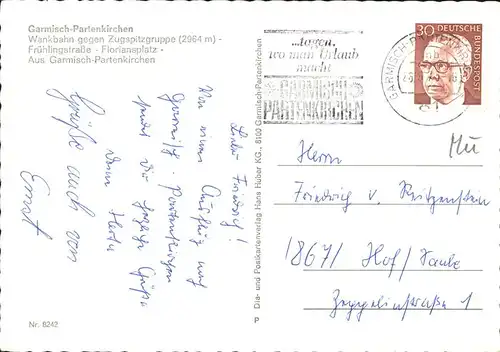 Garmisch-Partenkirchen
Wankbahn gegen Zugspitzgruppe (2964 m) -
Frühlingstraße - Floriansplatz -
Aus Garmisch-Partenkirchen
Lieber Friedrich!
Von einem Ausflug nach
Garmisch-Partenkirchen
sendet Dir herzliche Grüße
Deine Herta
Grüße auch von
Ernst
Nr. 8242
Dia- und Postkartenverlag Hans Huber KG., 8100 Garmisch-Partenkirchen
P
...tagen,
wo man Urlaub
macht
GARMISCH
PARTENKIRCHEN
GARMISCH-PARTENKIRCHEN
30 DEUTSCHE
BUNDESPOST
Mü
Herrn
Friedrich v. Reitzenstein
867/ Hof/Saale
Zeppelinstraße 1